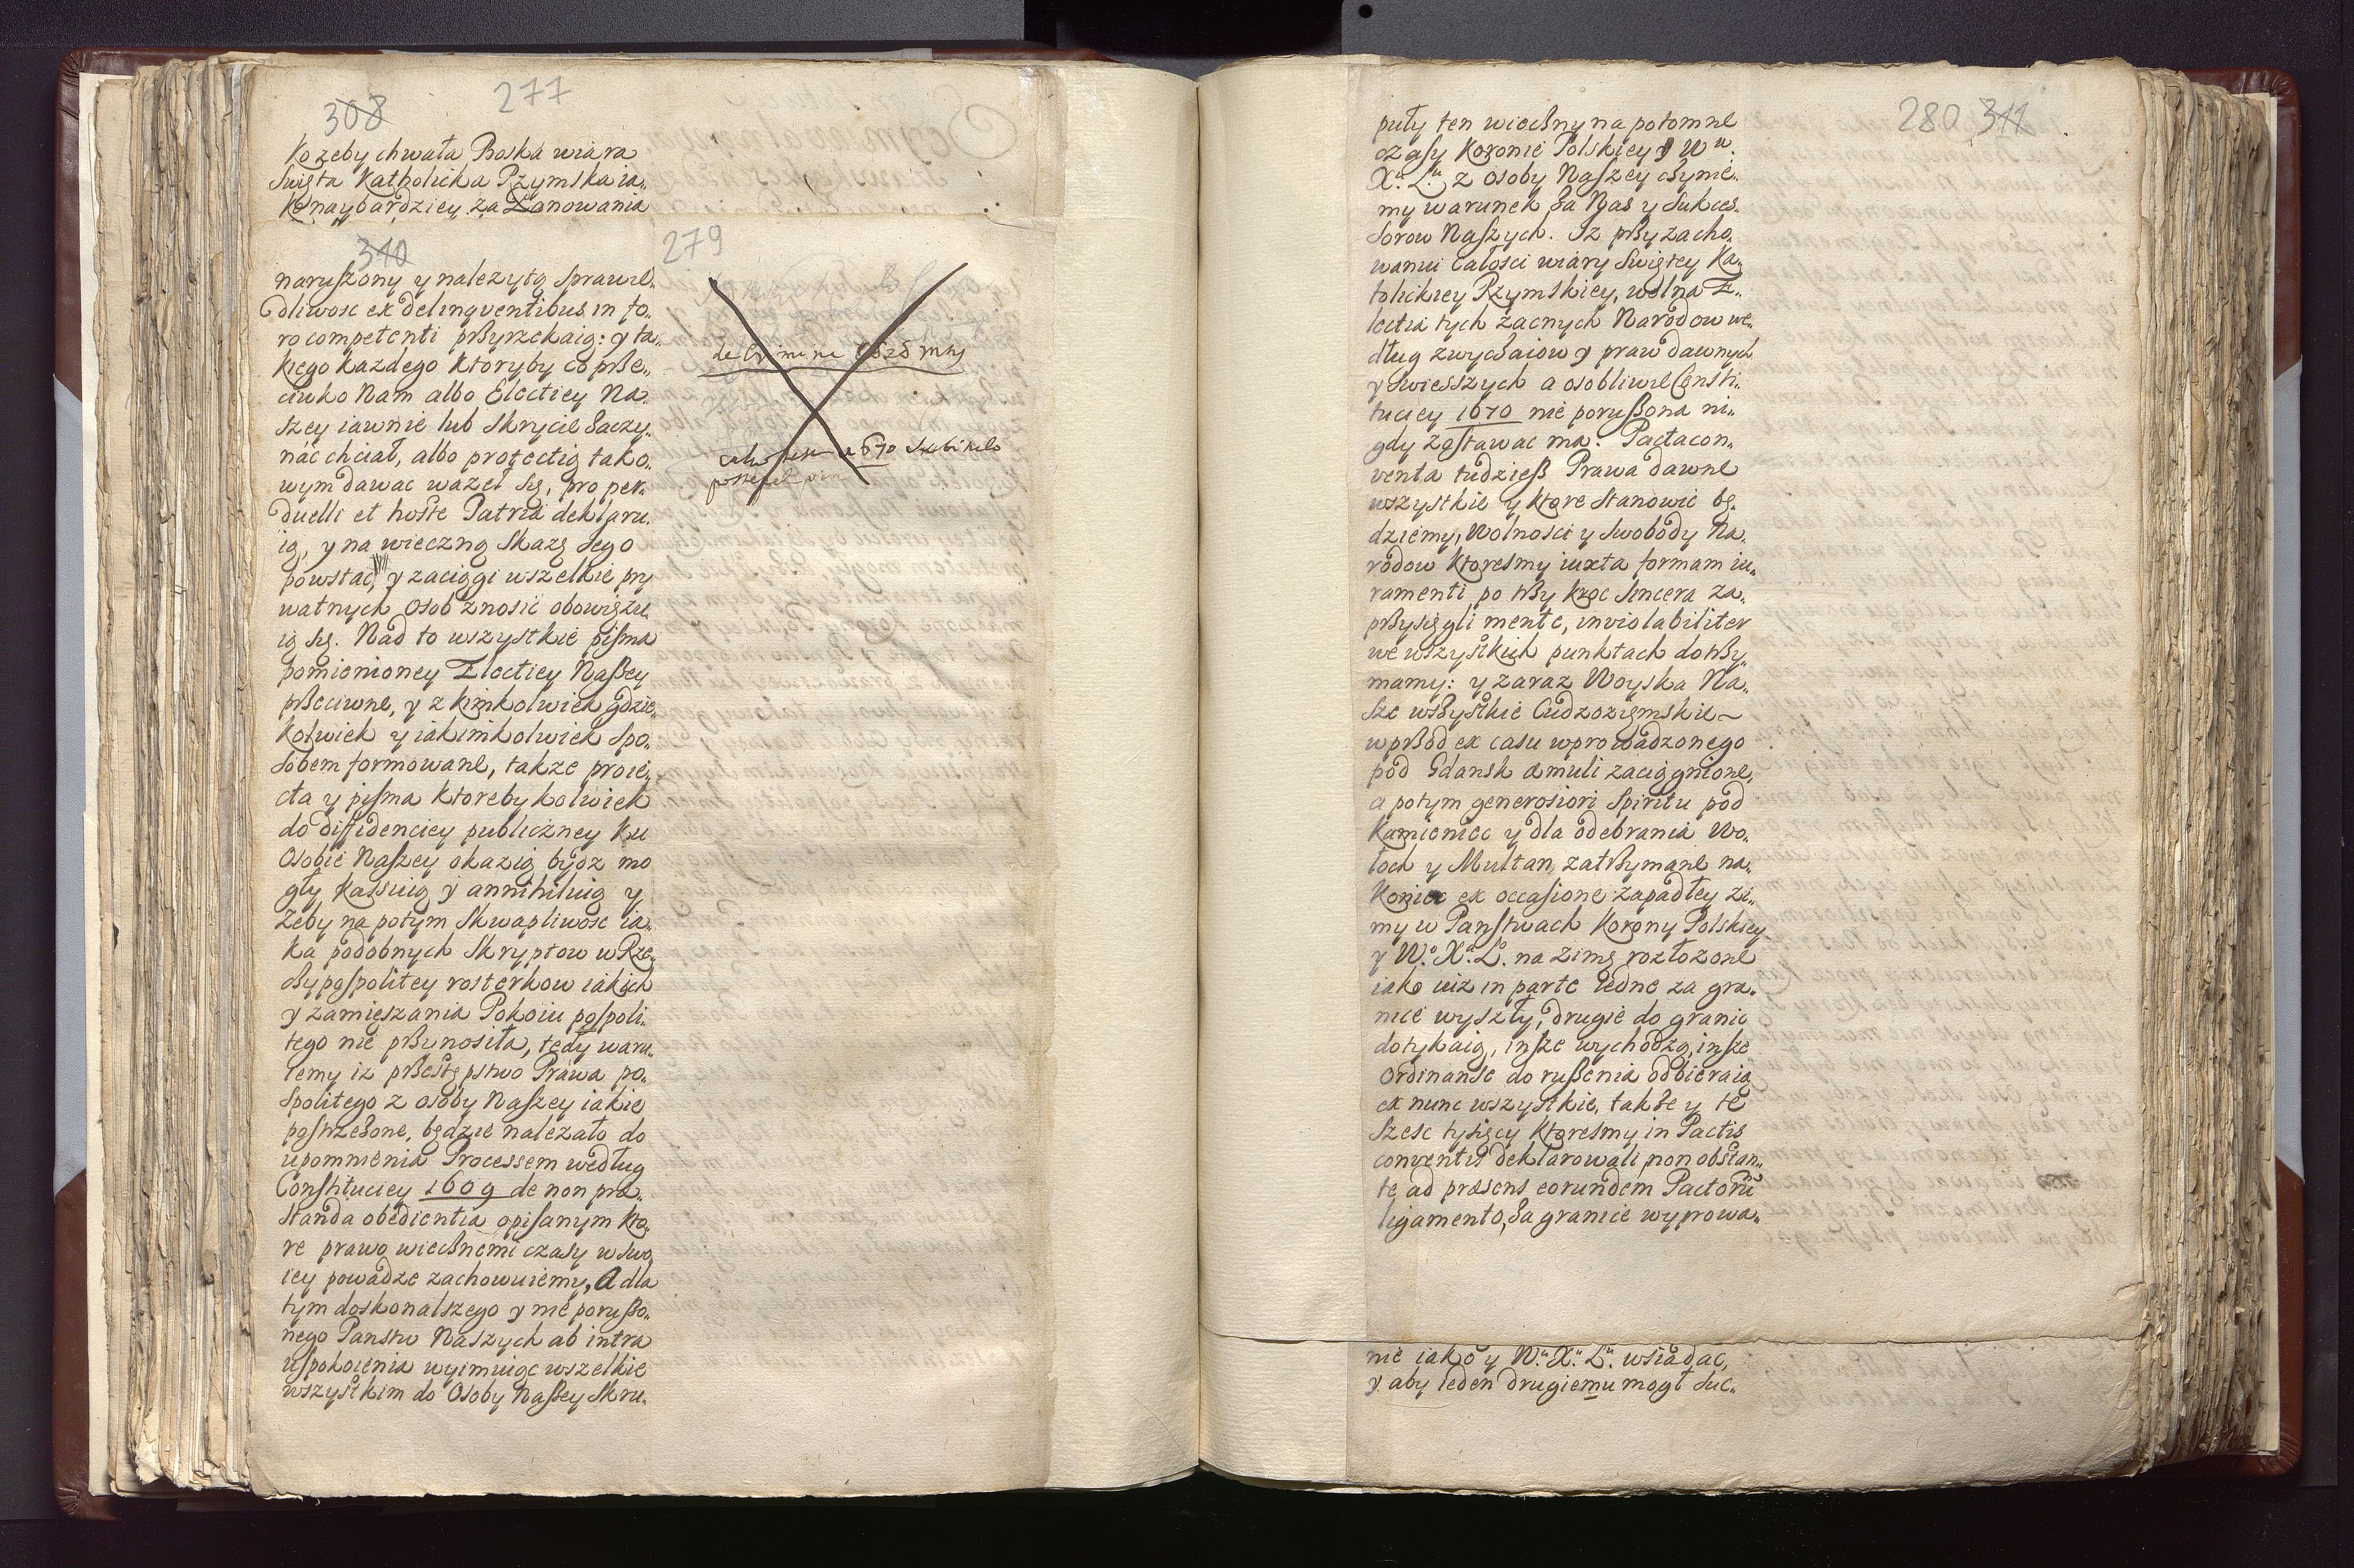 308
277
Ko zeby chwała Boska wiara
Swięta Katholicka Rzymska ia„
Ko naybardziey za Panowania
310
279
naruszony y nalezytą Sprawie„
dliwosc ex delinquentibus in fo„
ro competenti przyrzekaią: y ta„
kiego kazdego ktoryby co prze„
ciwko Nam albo Electicy Na„
szey iawnie lub skrycie zaczy„
náć chciał, albo protectią tako„
wym dawac wazeł się, pro per„
duelli et hoste Patriæ deklaru„
ią, y na wieczną skazę Jego
powstać, y zaciągi wszelkie pry
watnych osob znosić obowiązu„
ią się. Nad to wszystkie pisma
pomienioney Electicy Naszey
przeciwne, y z kimkolwiek gdzie„
kolwiek y iakimkolwiek spo„
sobem formowane, takze proie„
cta y pisma ktorebykolwiek
do diffidenciey publiczney ku
Osobie Naszey okazią bydz mo
gły kassuią y annihiluią y
zeby na potym skwapliwosc ia„
ka podobnych skryptow w Rze„
czypospolitey rosterkow iakich
y zamięszania Pokoiu pospoli„
tego nie przynosiła, tedy waru„
iemy iz przestępstwo Prawa po„
spolitego z osoby Naszey iakie
postrzezone, będzie nalezało do
upomnienia Processem według
Constituciey 1609 de non præ„
standa obedientia opisanym kto„
re prawo wiecznemi czasy w swo„
iey powadze zachowuiemy, A dla
tym doskonalszego y nie poruszo„
nego Panstw Naszych ab intra
uspokoienia wyimuiąc wszelkie
wszystkim do Osoby Naszey skru„
de Crimine
1670
280 311
puły ten wieczny na potomne
czasy Koronie Polskiey y Wu.
Xu. Lu. z osoby Naszey czynie„
my warunek za Nas y Sukces„
sorow Naszych. Iz przy zacho„
waniu całosci wiary Swiętey Ka„
tolickiey Rzymskiey, wolna E„
lectia tych zacnych Narodow we„
dług zwyczaiow y praw dawnych
y swiesszych a osobliwie Consti„
tuciey 1670 nie poruszona ni„
gdy zostawac ma. Pacta con„
venta tudziesz Prawa dawne
wszystkie y ktore stanowic bę„
dziemy, Wolnosci y Swobody Na„
rodow ktoresmy iuxta formam iu„
ramenti po trzy kroc sincera za„
przysięgli mente, inviolabiliter
we wszystkich punktach dotrzy„
mamy: y zaraz Woyska Na„
sze wszystkie Cudzoziemskie
wprzod ex casu wprowadzonego
pod Gdansk æmuli zaciągnione,
a potym generosiori Spiritu pod
Kamieniec y dla odebrania Wo„
łoch y Multan, zatrzymane na„
koniec ex occasione zapadłey zi„
my w Panstwach Korony Polskiey
y W.o X.a L. na zimę rozłozone
iako iuz in parte iedne za gra„
nice wyszły, drugie do granic
dotykaią, insze wychodzą, insze
Ordinanse do ruszenia odbieraią
ex nunc wszystkie, takze y te
szesc tysięcy ktoresmy in Pactis
conventis deklarowali non obstan„
te ad præsens eorundem Pactorũ
ligamento, za granice wyprowa„
nie iako y W.u X.u L.u wsiadac,
y aby ieden drugiemu mogł suc„